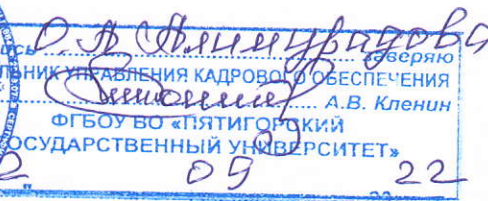 О.А Алимурадова
веряю
ЛЬНИК УПРАВЛЕНИЯ КАДРОВОГО ОБЕСПЕЧЕНИЯ
А.В. Кленин
ФГБОУ ВО «ПЯТИГОРСКИЙ
ОСУДАРСТВЕННЫЙ УНИВЕРСИТЕТ»
09 22